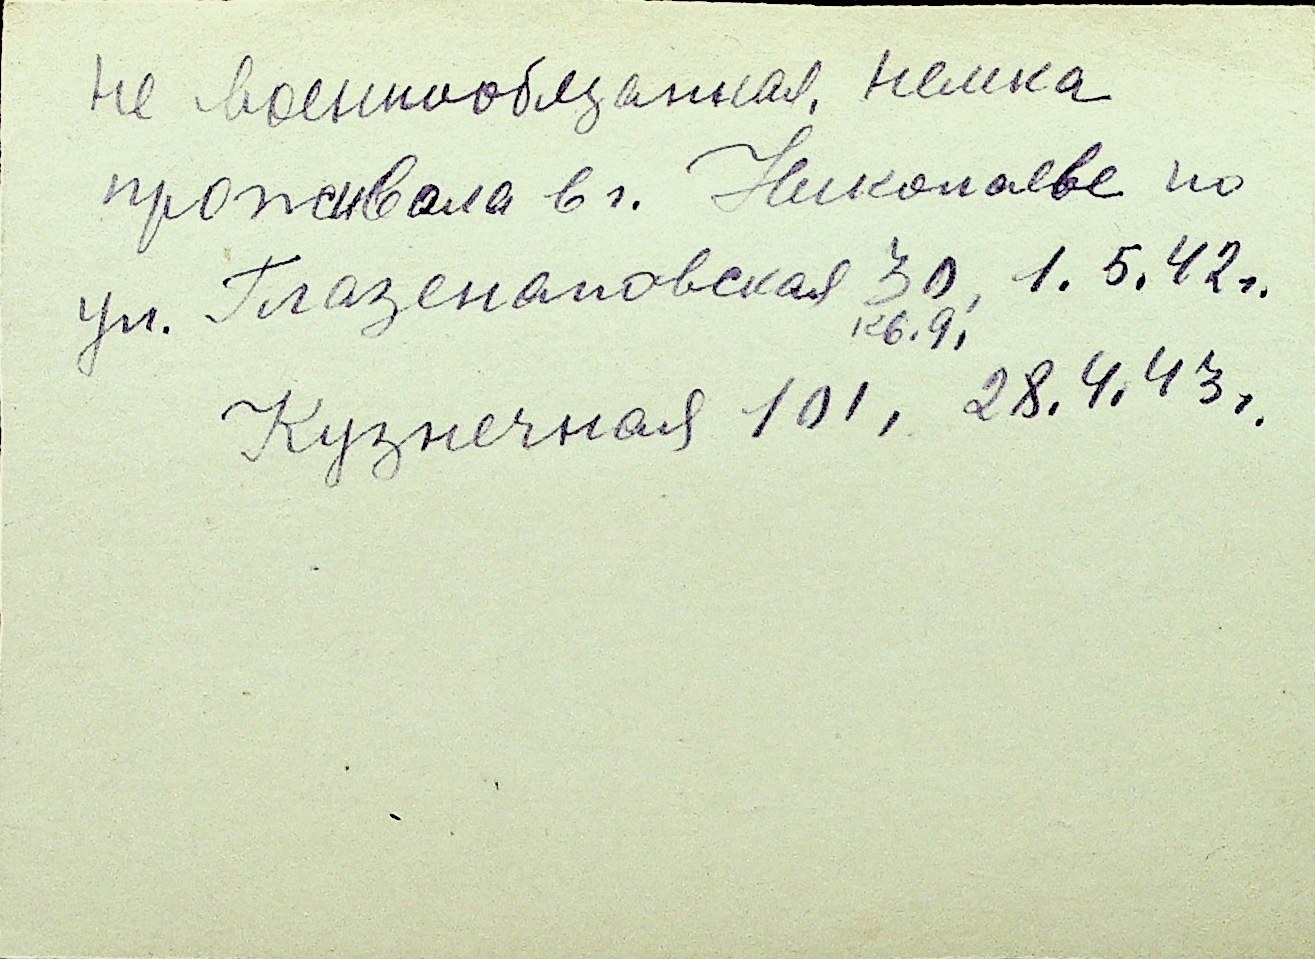 не военнообязанная, немка
проживала в г. Николаеве по
ул. Глазенаповская 30, 1.5.42г.
кв. 9,
Кузнечная 101, 28.4.43г.